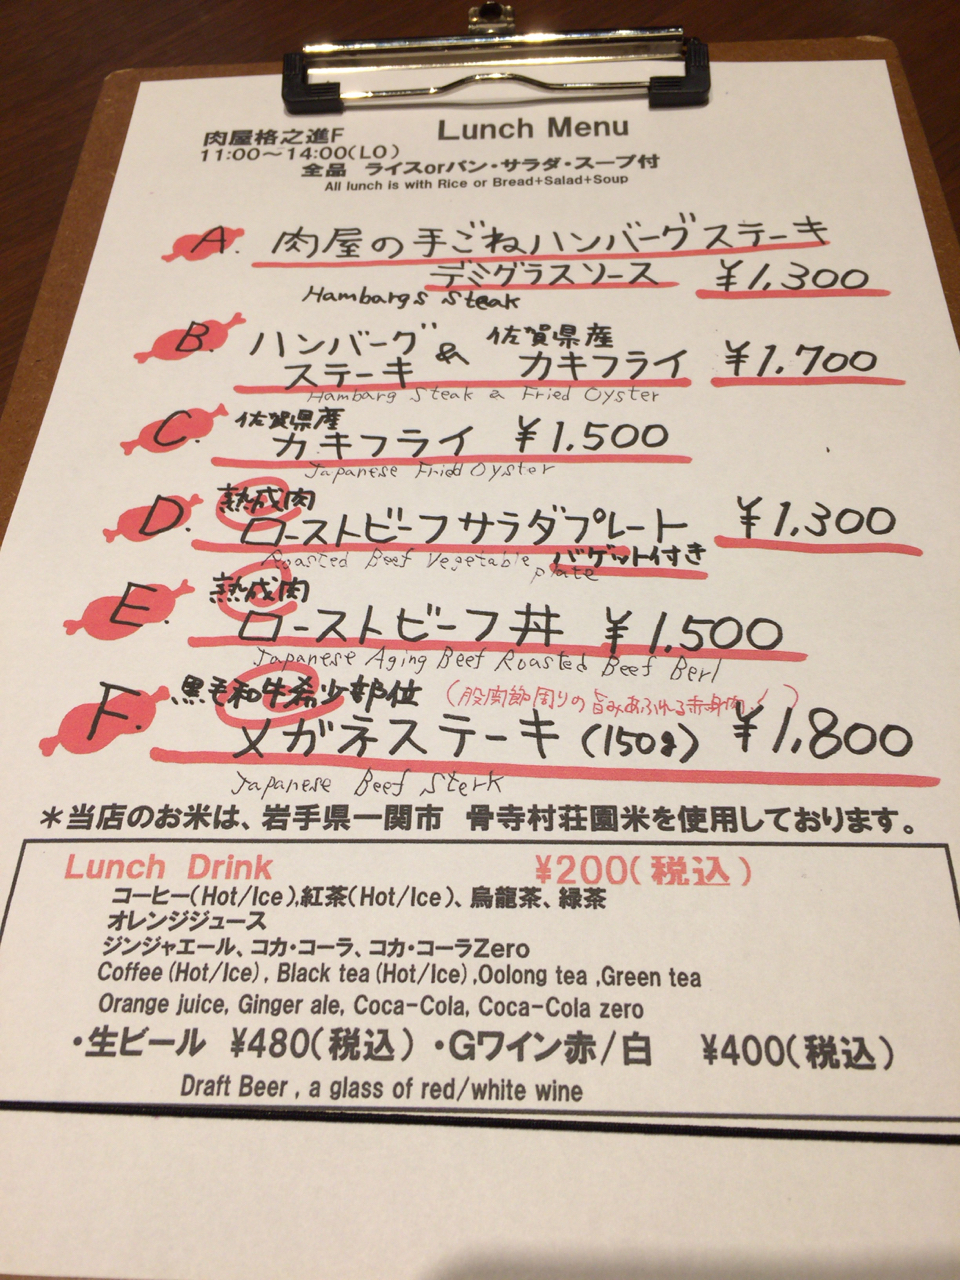 肉屋格之進F Lunch Menu
11:00～14:00(LO)
全品 ライスorパン・サラダ・スープ付
All lunch is with Rice or Bread+Salad+Soup
A. 肉屋の手ごねハンバーグステーキ
デミグラスソース ¥1,300
Hambargs Steak
B. ハンバーグ ステーキ & 佐賀県産 カキフライ ¥1,700
Hambarg Steak & Fried Oyster
C. 佐賀県産
カキフライ ¥1.500
Japanese Fried Oyster
D. 熟成肉
ローストビーフサラダプレート ¥1,300
バゲット付き
Roasted Beef Vegetable plate
E. 熟成肉
ローストビーフ丼 ¥1,500
Japanese Aging Beef Roasted Beef Berl
F. 黒毛和牛希少部位 (股関節周りの旨みあふれる赤身肉!)
メガネステーキ (150g) ¥1,800
Japanese Beef Sterk
＊当店のお米は、岩手県一関市 骨寺村荘園米を使用しております。
Lunch Drink ¥200(税込)
コーヒー(Hot/Ice),紅茶(Hot/Ice)、烏龍茶、緑茶
オレンジジュース
ジンジャエール、コカ・コーラ、コカ・コーラZero
Coffee(Hot/Ice), Black tea(Hot/Ice),Oolong tea ,Green tea
Orange juice, Ginger ale, Coca-Cola, Coca-Cola zero
・生ビール ¥480(税込) ・Gワイン赤/白 ¥400(税込)
Draft Beer , a glass of red/white wine